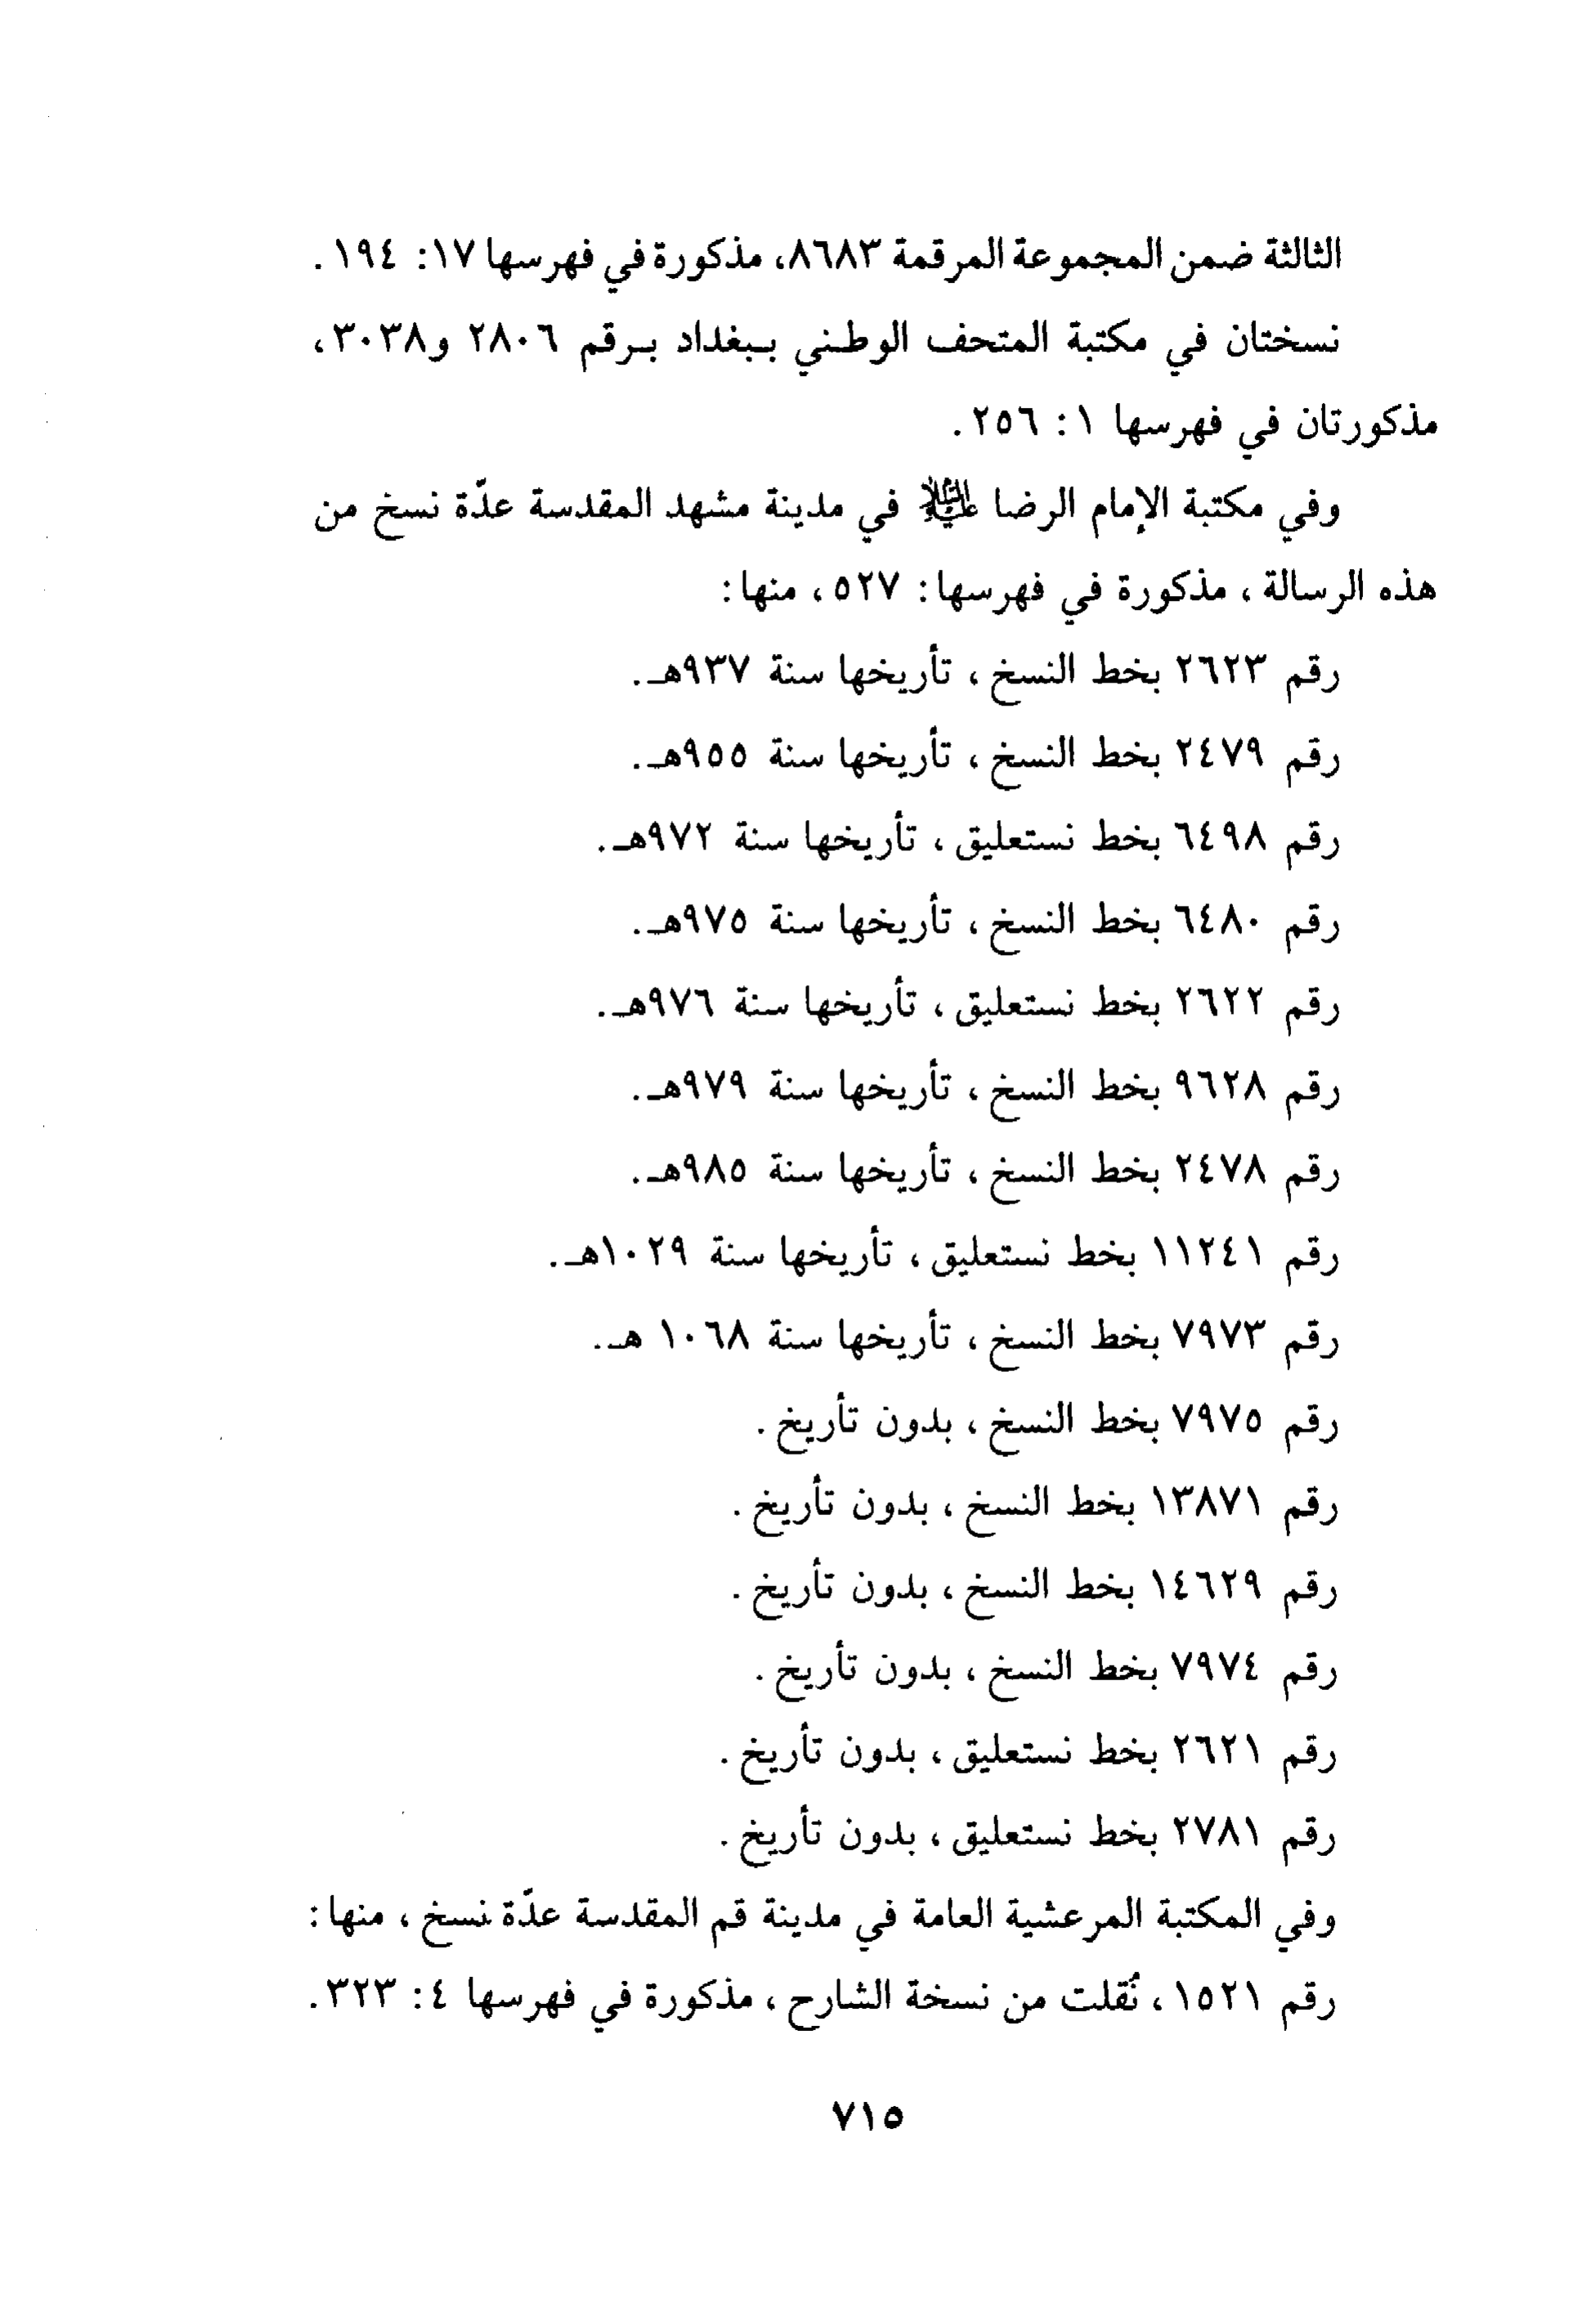 الثالثة ضمن المجموعة المرقمة ٨٦٨٣، مذكورة في فهرسها ١٧: ١٩٤.
نسختان في مكتبة المتحف الوطني ببغداد برقم ٢٨٠٦ و٣٠٣٨،
مذكورتان في فهرسها ١: ٢٥٦.
وفي مكتبة الإمام الرضا عليه السلام في مدينة مشهد المقدسة عدّة نسخ من
هذه الرسالة، مذكورة في فهرسها: ٥٢٧، منها:
رقم ٢٦٢٣ بخط النسخ، تأريخها سنة ٩٣٧هـ.
رقم ٢٤٧٩ بخط النسخ، تأريخها سنة ٩٥٥هـ.
رقم ٦٤٩٨ بخط نستعليق، تأريخها سنة ٩٧٢هـ.
رقم ٦٤٨٠ بخط النسخ، تأريخها سنة ٩٧٥هـ.
رقم ٢٦٢٢ بخط نستعليق، تأريخها سنة ٩٧٦هـ.
رقم ٩٦٢٨ بخط النسخ، تأريخها سنة ٩٧٩هـ.
رقم ٢٤٧٨ بخط النسخ، تأريخها سنة ٩٨٥هـ.
رقم ١١٢٤١ بخط نستعليق، تأريخها سنة ١٠٢٩هـ.
رقم ٧٩٧٣ بخط النسخ، تأريخها سنة ١٠٦٨ هـ.
رقم ٧٩٧٥ بخط النسخ، بدون تأريخ.
رقم ١٣٨٧١ بخط النسخ، بدون تأريخ.
رقم ١٤٦٢٩ بخط النسخ، بدون تأريخ.
رقم ٧٩٧٤ بخط النسخ، بدون تأريخ.
رقم ٢٦٢١ بخط نستعليق، بدون تأريخ.
رقم ٢٧٨١ بخط نستعليق، بدون تأريخ.
وفي المكتبة المرعشية العامة في مدينة قم المقدسة عدّة نسخ، منها:
رقم ١٥٢١، نُقلت من نسخة الشارح، مذكورة في فهرسها ٤: ٣٢٣.
٧١٥